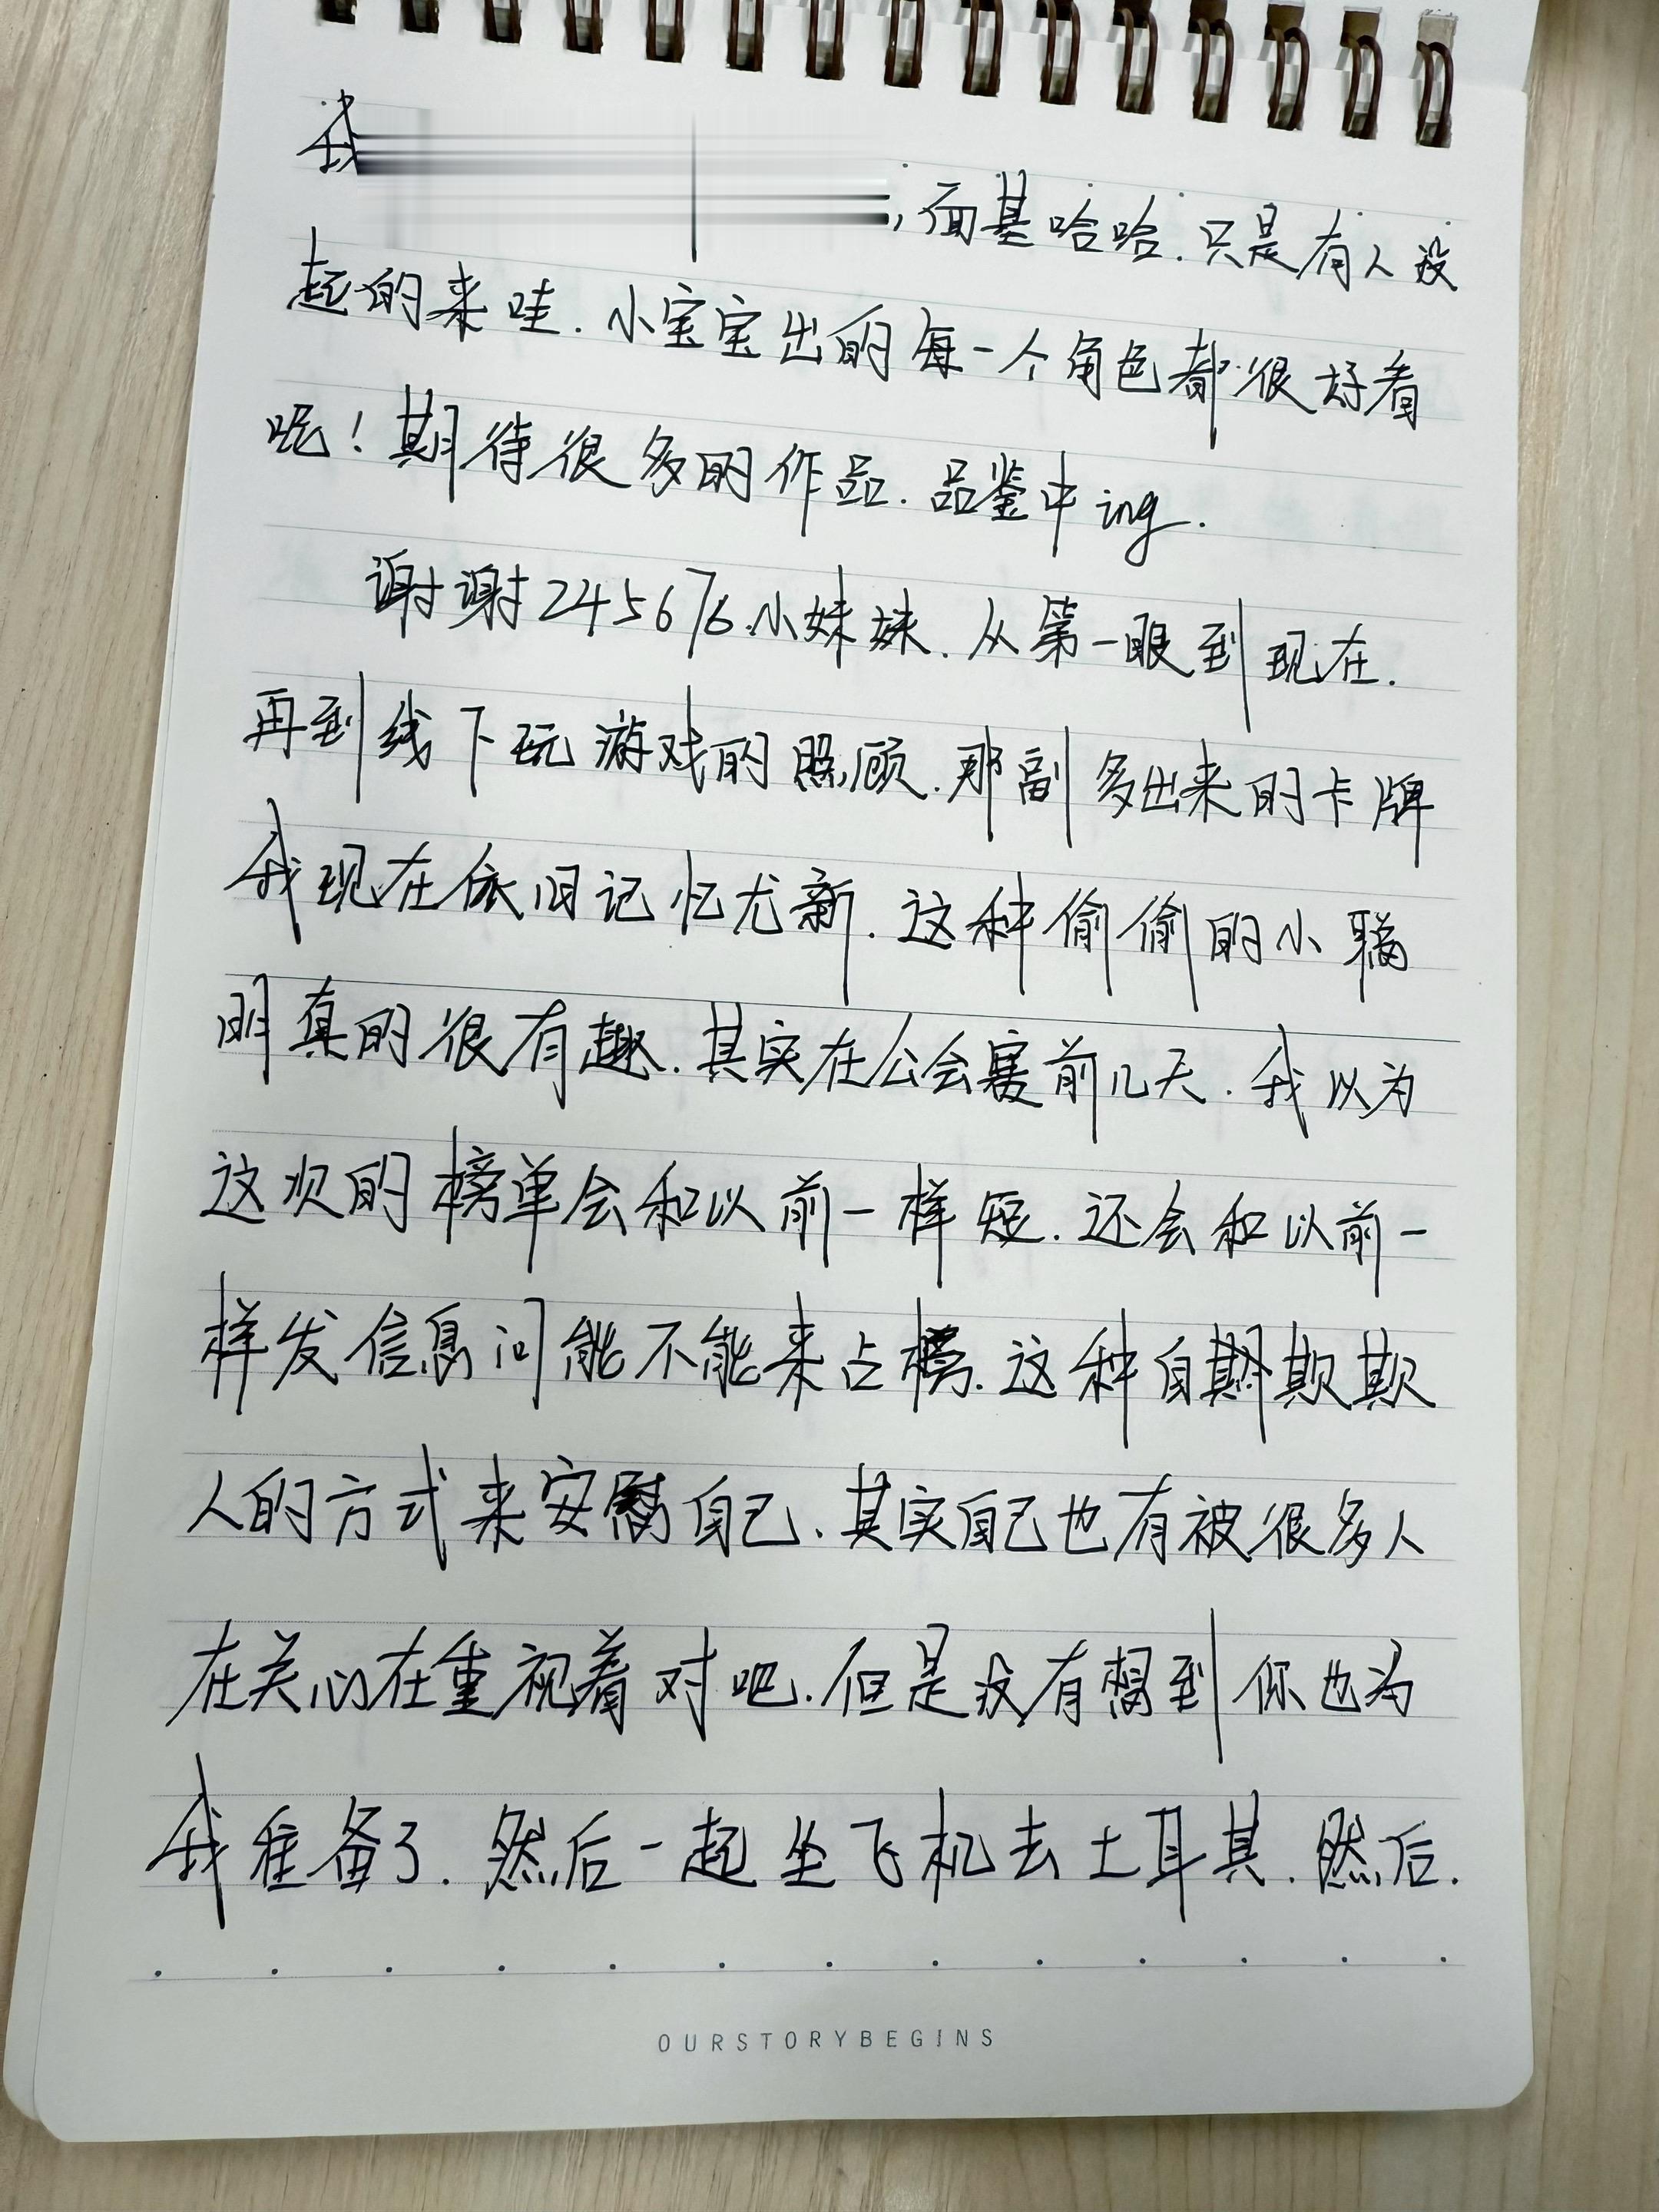 我
，面基哈哈.只是有人没
起的来哇.小宝宝出的每一个角色都很好看
呢！期待很多的作品.品鉴中ing.
谢谢245676.小妹妹.从第一眼到现在.
再到线下玩游戏的照顾.那副多出来的卡牌
我现在依旧记忆尤新.这种偷偷的小聪
明真的很有趣.其实在公会赛前几天.我以为
这次的榜单会和以前一样短.还会和以前一
样发信息问能不能来占榜.这种自欺欺
人的方式来安慰自己.其实自己也有被很多人
在关心在重视着对吧.但是没有想到你也为
我准备了.然后一起坐飞机去土耳其.然后.
OURSTORYBEGINS